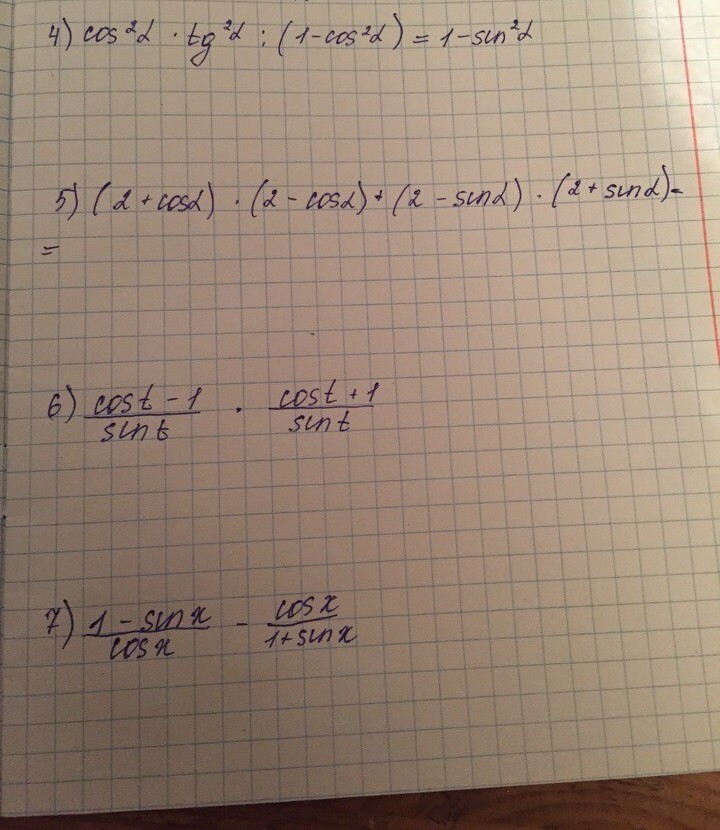 4) cos²α · tg²α : (1-cos²α) = 1-sin²α
5) (2+cosα) · (2-cosα) + (2-sinα) · (2+sinα) =
=
6) cost-1 · cost+1
sint sint
7) 1-sinx - cosx
cosx 1+sinx